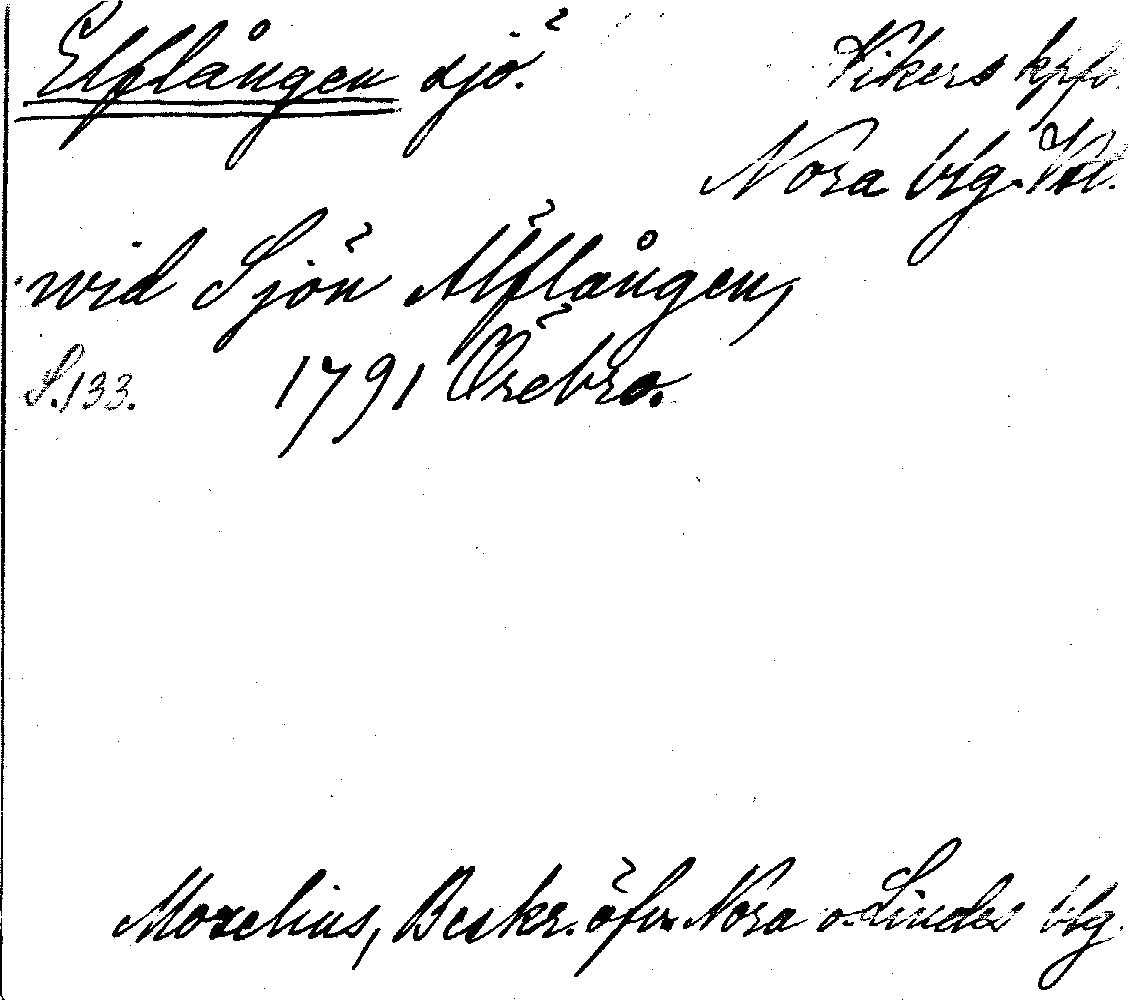 Elflången sjö.
Vikers kpfs.
Nora blg. Vtl.
wid Sjön Älflången,
S. 133. 1791 Örebro.
Moxelius, Beskr. öfv. Nora o. Lindes blg.